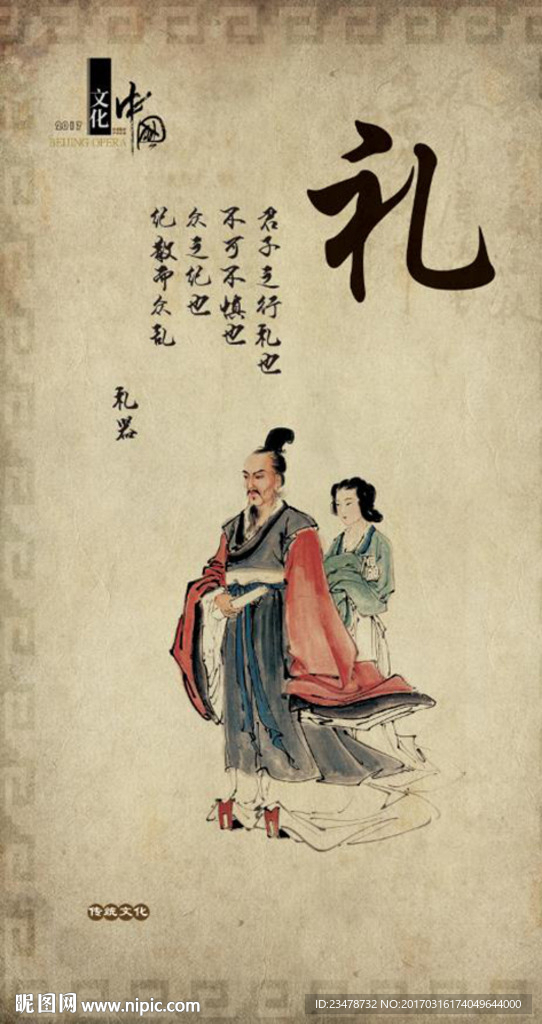 礼
君子之行礼也
不可不慎也
众之纪也
纪散而众乱
礼器
中国
文化
2017
BEIJING OPERA
传统文化
昵图网 www.nipic.com
ID:23478732 NO:20170316174049644000